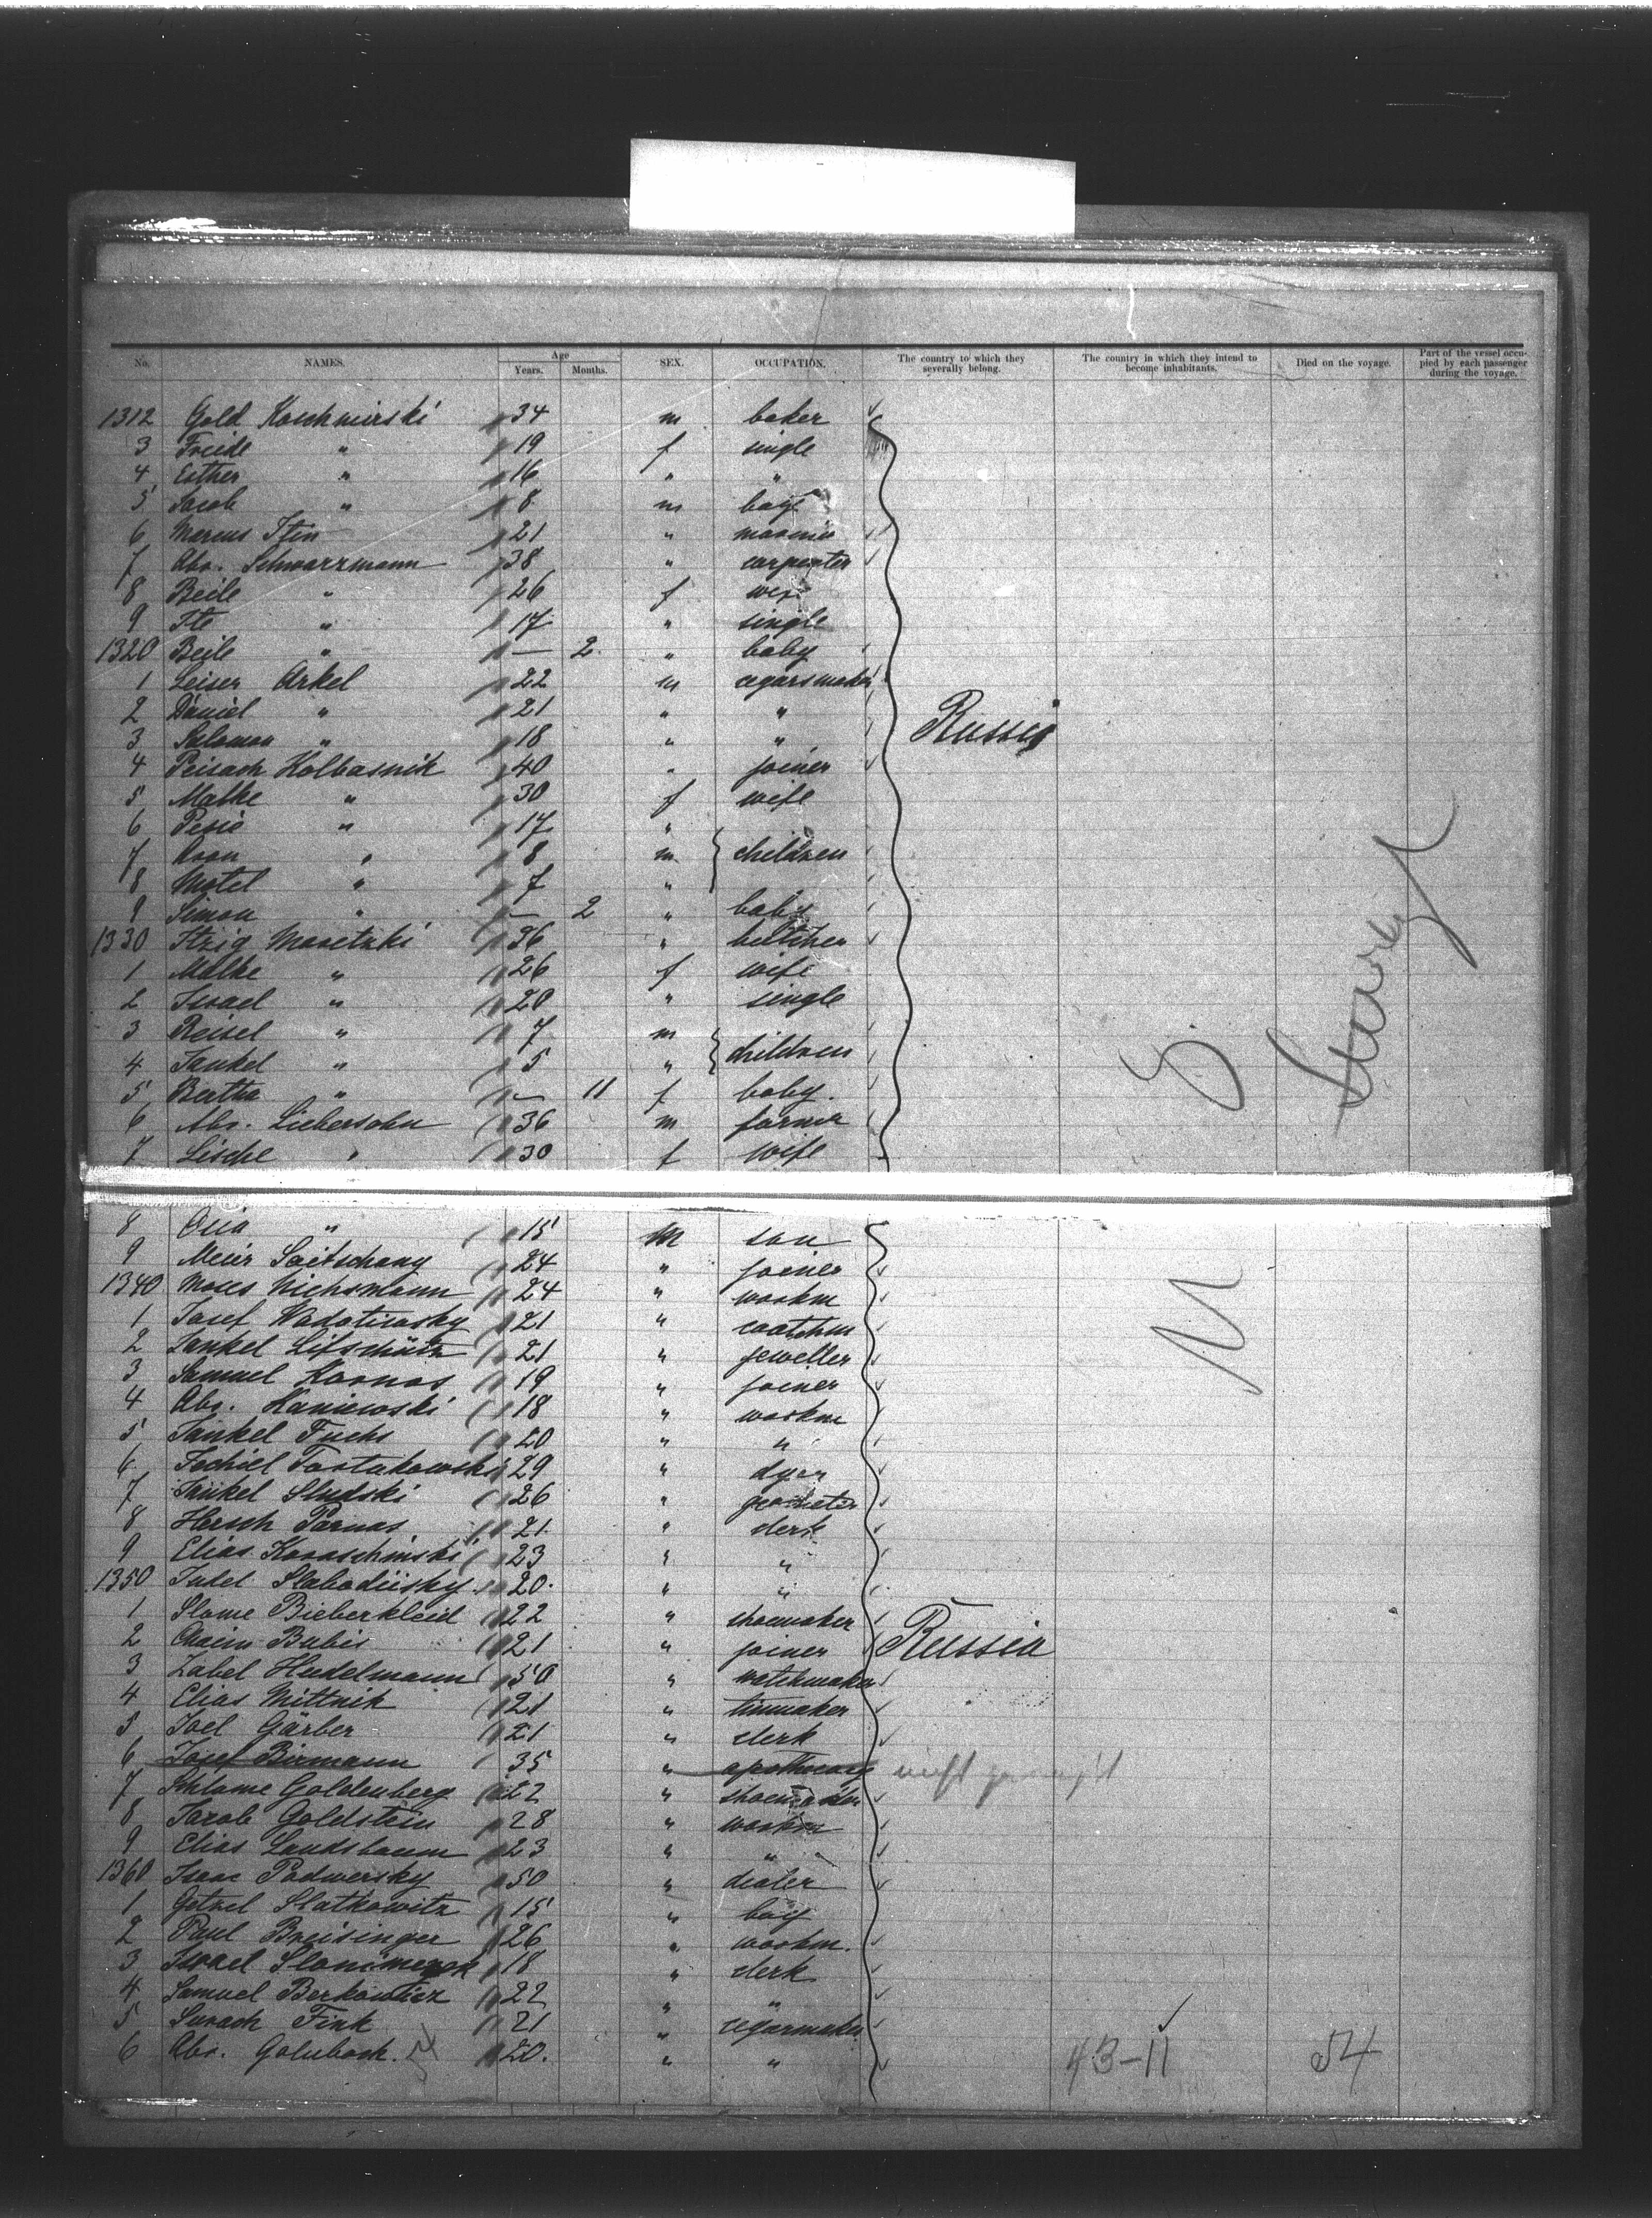 No. NAMES. Age Years. Months. SEX. OCCUPATION. The country to which they severally belong. The country in which they intend to become inhabitants. Died on the voyage. Part of the vessel occupied by each passenger during the voyage.
1312 Gold Koschmirski 34 m baker
3 Freide " 19 f single
4 Esther " 16 " "
5 Jacob " 8 m boy
6 Marcus Stein 21 "
7 Abr. Schwarzmann 38 " carpenter
8 Beile " 26 f wife
9 Ite " 17 " single
1320 Beile " — 2 " baby
1 Leiser Arkel 22 m cegarsmaker
2 Daniel " 21 " "
3 Salomon " 18 " "
Russia
4 Peisach Kolbasnik 40 " joiner
5 Malke " 30 f wife
6 Pesie " 17 "
7 Aron " 8 m children
8 Motel " 7 "
9 Simon " — 2 " baby
1330 Itzig Masetzki 36 " butcher
1 Malke " 26 f wife
2 Israel " 20 " single
3 Reisel " 7 m
4 Jankel " 5 " children
5 Bertha " — 11 f baby.
6 Abr. Liebersohn 36 m farmer
7 Lische " 30 f wife
8 " 15 m son
9 Meier 24 " joiner
1340 Moses Nichsmann 24 " workm
1 Josef 21 "
2 Jankel Lifschütz 21 " jeweller
3 Samuel Kornas 19 " joiner
4 Abr. Haniewski 18 " workm
5 Jankel Fuchs 20 " "
6 Jechiel Tortakowski 29 " dyer
7 Jankel Sludski 26 "
8 Hersch Parnas 21 " clerk
9 Elias Koraschinski 23 " "
1350 Judel 20. " "
1 Slome Bieberkleid 22 " shoemaker
2 Chaim Bubis 21 " joiner
Russia
3 Zabel Hudelmann 50 " watchmaker
4 Elias Mittnik 21 " tinmaker
5 Joel Gärber 21 " clerk
6 Josef Birmann 35 " apothecary nicht
7 Schlome Goldenberg 22 " shoemaker
8 Jacob Goldstein 28 " workm
9 Elias Landsbaum 23 " "
1360 Isaac Podwersky 50 " dealer
1 Getzel Slatkowitz 15 " boy
2 Paul Breisinger 26 " workm.
3 Israel 18 " clerk
4 Samuel Berkowicz 22 " "
5 Fink 21 " cegarmaker
6 Abr. Golubock. 20. " "
43-11 54